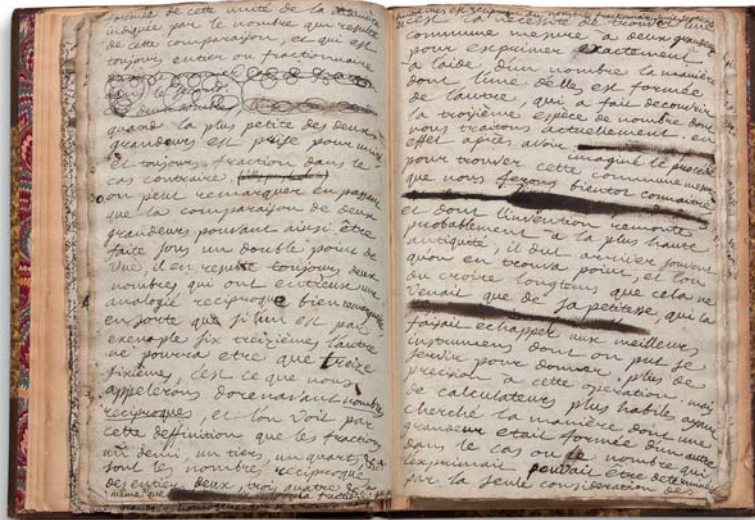 formée de cette unité de la manière
indiquée par le nombre qui resulte
de cette comparaison, et qui est
toujours entier ou fractionnaire
quand la plus petite des deux
grandeurs est prise pour unité
et toujours fraction dans le
cas contraire
on peut remarquer en passant
que la comparaison de deux
grandeurs pouvant ainsi être
faite sous un double point de
vue, il en resulte toujours deux
nombres qui ont entreux une
analogie reciproque bien remarquable
en sorte que si l'un est par
exemple six treizièmes l'autre
ne pourra etre que treize
sixièmes, c'est ce que nous
appelerons dorenavant nombres
reciproques, et l'on voit par
cette deffinition que les fractions
un demi, un tiers, un quart, &.a
sont les nombres reciproques
des entiers deux, trois, quatre &.a
même que
c'est la nécessité de trouver une
commune mesure à deux grandeurs
pour exprimer exactement
à l'aide d'un nombre la manière
dont l'une d'elles est formée
de l'autre, qui a fait decouvrir
la troisième espèce de nombre dont
nous traitons actuellement. en
effet après avoir
imaginé le procédé
pour trouver cette commune mesure
que nous ferons bientot connaitre,
et dont l'invention remonte
probablement à la plus haute
antiquité, il dut arriver souvent
qu'on en trouva point, et l'on
du croire longtems que cela ne
venait que de sa petitesse, qui la
faisait echapper aux meilleurs
instrumens dont on put se
servir pour donner plus de
precision à cette operation. mais
de calculateurs plus habiles ayant
cherché la manière dont une
grandeur etait formée d'un autre
dans le cas ou le nombre qui
l'exprimait pouvait être determiné
par la seule consideration des